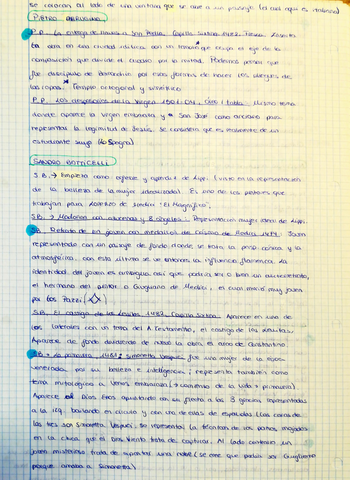 se colocan al lado de una ventana que se abre a un paisaje (el cual aquí es italiano)
PIETRO PERUGINO
P.P. La entrega de llaves a San Pedro. Capilla Sixtina. 1482. Fresco. Resalta
la obra en una ciudad idílica con un templo que ocupa el eje de la
composición que divide el cuadro por la mitad. Podemos pensar que
fue discípulo de Verrocchio por esta forma de hacer los pliegues de
las ropas. Templo octogonal y simétrico
P.P. Los desposorios de la Virgen 1504. Óleo / tabla. Mismo tema
donde aparece la virgen embarazada y San José como anciano para
representar la legitimidad de Jesús. Se considera que es realmente de un
estudiante suyo (Lo Spagna)
SANDRO BOTTICELLI
S.B. → Empieza como orfebre y aprende d Lippi (visto en la representación
de la belleza de la mujer idealizada). Es uno de los pintores que
trabajan para Lorenzo de Medici "El Magnífico".
S.B. → Madonna con 8 ángeles. Representación mujer ideal de Lippi.
S.B. Retrato de un joven con medallón de Cosimo de Medici 1474. Joven
representado con un paisaje de fondo donde se trata la persp. cónica y la
atmosférica, con esta última se ve entonces la influencia flamenca. La
identidad del joven es ambigua así que podría ser o bien un autorretrato,
el hermano del pintor o Giuliano de Medici, el cual murió muy joven
por los Pazzi
S.B. El castigo de los levitas, 1482, Capilla Sixtina. Aparece en uno de
los laterales con un tema del A. testamento, el castigo de los levitas.
Aparece de fondo dividiendo de nuevo la obra el arco de Constantino.
S.B. La primavera, 1481; Simonetta Vespucci fue una mujer de la época
venerada por su belleza e inteligencia, representa también como
tema mitológico a Venus embarazada (→ comienzo de la vida + primavera)
Aparece Eros apuntando con su flecha a las 3 gracias representadas
a la izq. bailando en círculo y con una de ellas de espaldas (Las caras de
las tres son Simonetta Vespucci). Se representa la técnica de los paños mojados
en la chica que el dios viento trata de capturar. Al lado contrario un
joven misterioso trata de apartar una nube (se cree que podría ser Giuliano
porque amaba a Simonetta)